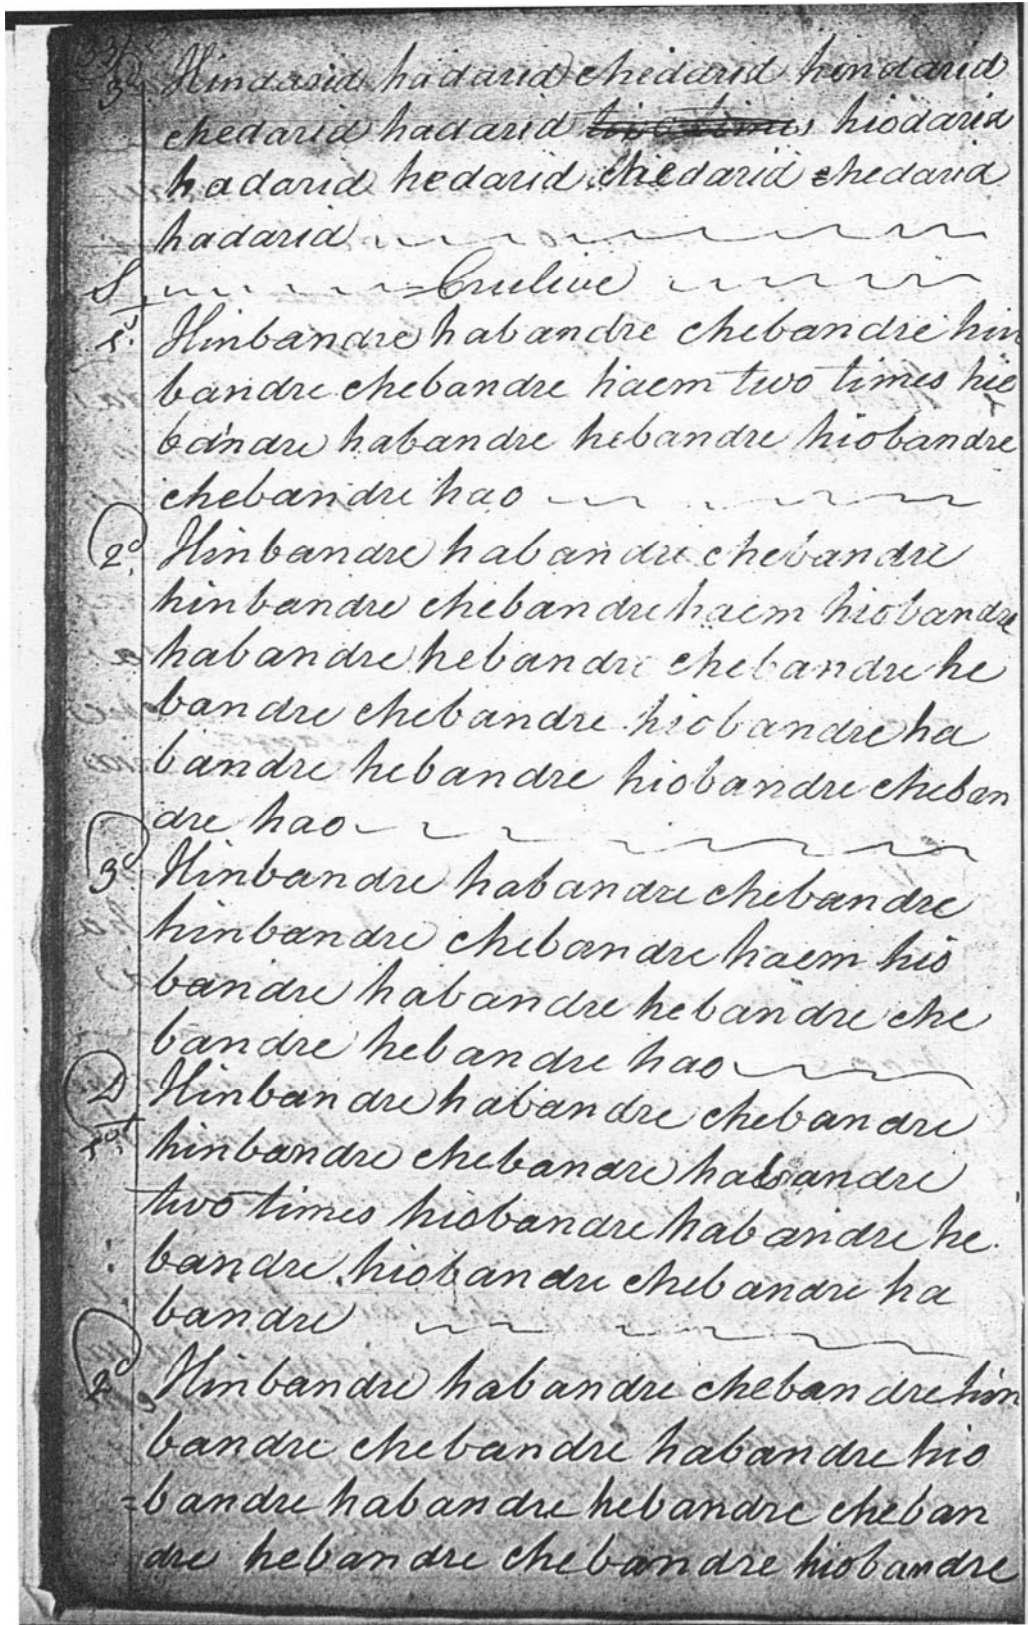 33
3d Hindarid hadarid chedarid hindarid
chedarid hadarid two times hiodarid
hadarid hedarid chedarid chedarid
hadarid
S Crulive
1st Hinbandre habandre chebandre hin
bandre chebandre haem two times hio
bandre habandre hebandre hiobandre
chebandre hao
2d Hinbandre habandre chebandre
hinbandre chebandre haem hiobandre
habandre hebandre chebandre he
bandre chebandre hiobandre ha
bandre hebandre hiobandre cheban
dre hao
3d Hinbandre habandre chebandre
hinbandre chebandre haem hio
bandre habandre hebandre che
bandre hebandre hao
D Hinbandre habandre chebandre
1st hinbandre chebandre habandre
two times hiobandre habandre he
bandre hiobandre chebandre ha
bandre
2d Hinbandre habandre chebandre hin
bandre chebandre habandre hio
=bandre habandre hebandre cheban
dre hebandre chebandre hiobandre